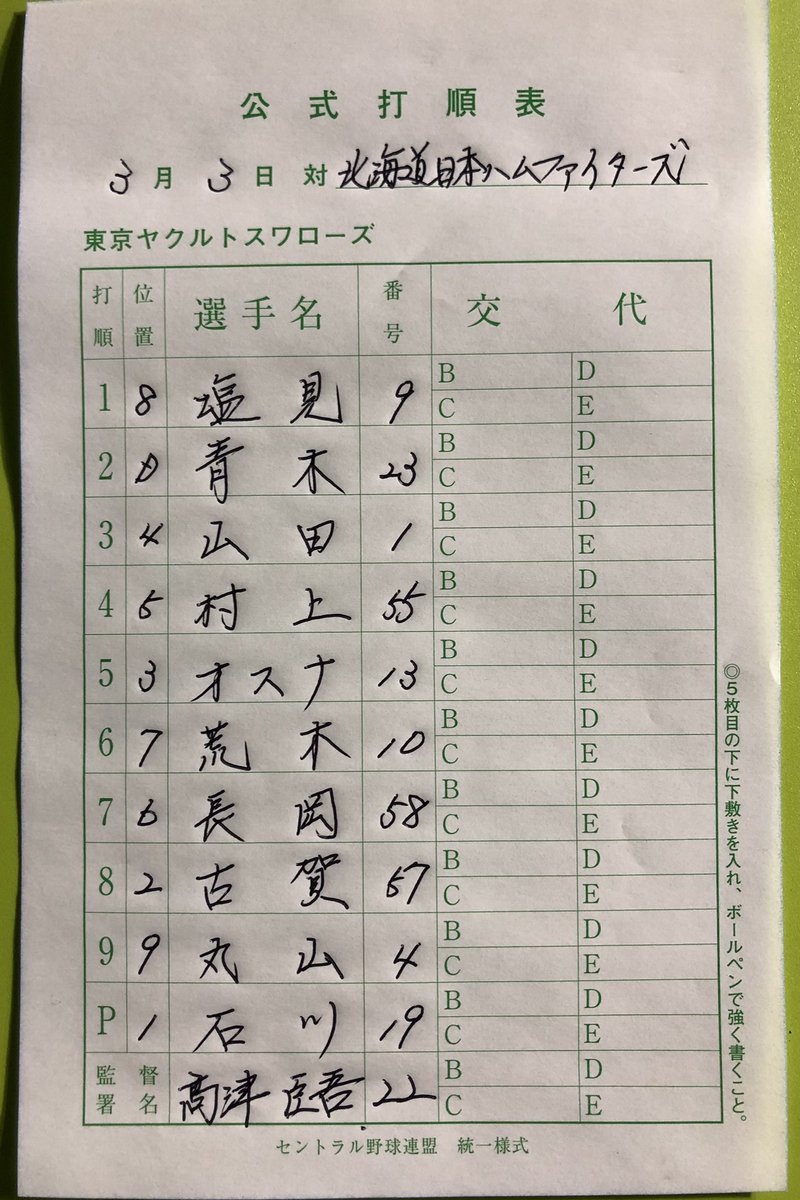 公式打順表
3月3日 対 北海道日本ハムファイターズ
東京ヤクルトスワローズ
打順 位置 選手名 番号 交代
1 8 塩見 9 B D C E
2 D 青木 23 B D C E
3 4 山田 1 B D C E
4 5 村上 55 B D C E
5 3 オスナ 13 B D C E
6 7 荒木 10 B D C E
7 6 長岡 58 B D C E
8 2 古賀 57 B D C E
9 9 丸山 4 B D C E
P 1 石川 19 B D C E
監督署名 高津臣吾 22 B D C E
セントラル野球連盟 統一様式
◎5枚目の下に下敷きを入れ、ボールペンで強く書くこと。